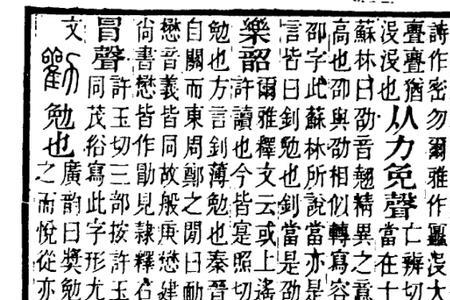 詩作密勿爾雅作蠠沒大
亹亹猶
沒沒也
从力免聲
亡辨切
當在十
蘇林曰劭音翹精異之意
高也卲與劭相似轉寫容
卲字此蘇林所說當亦是
言皆曰釗勉也釗當是劭
樂韶
爾雅釋文云或上遙
許讀也今皆寔照切
勉也方言釗薄勉也秦晉
自關而東周鄭之閒曰勔
懋音義皆同故般庚懋建
尚書懋皆作勖見隸釋石
冒聲
許玉切三部按許玉
同茂俗寫此字形尤
文
勸
勉也
廣韵曰奬勉
之而悅從亦